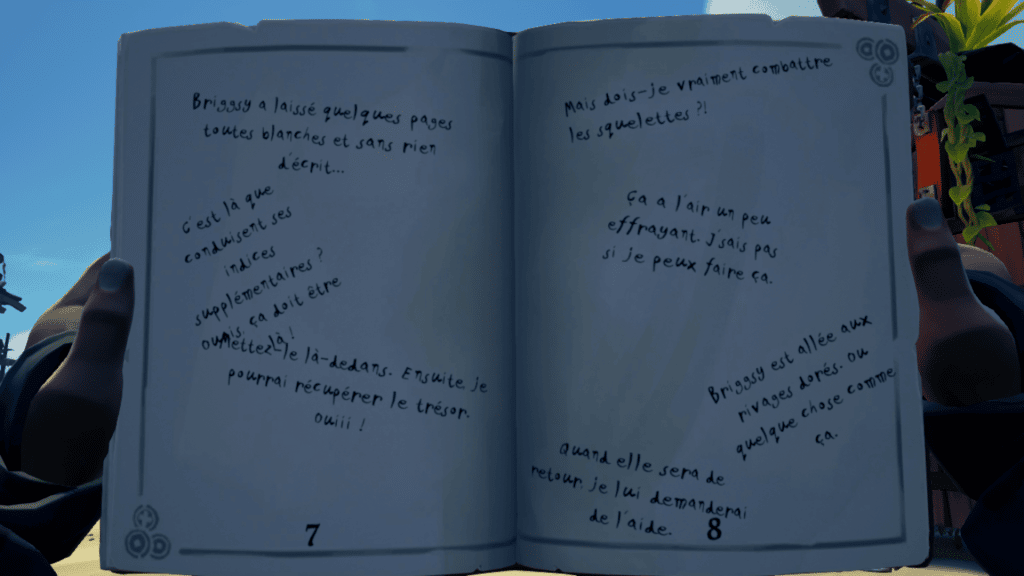 Briggsy a laissé quelques pages
toutes blanches et sans rien
d'écrit...
C'est là que
conduisent ses
indices
supplémentaires ?
ouais, ça doit être
là !
mettez-le là-dedans. Ensuite je
pourrai récupérer le trésor.
ouiii !
7
Mais dois-je vraiment combattre
les squelettes ?!
Ça a l'air un peu
effrayant. J'sais pas
si je peux faire ça.
Briggsy est allée aux
rivages dorés. ou
quelque chose comme
ça.
Quand elle sera de
retour, je lui demanderai
de l'aide.
8